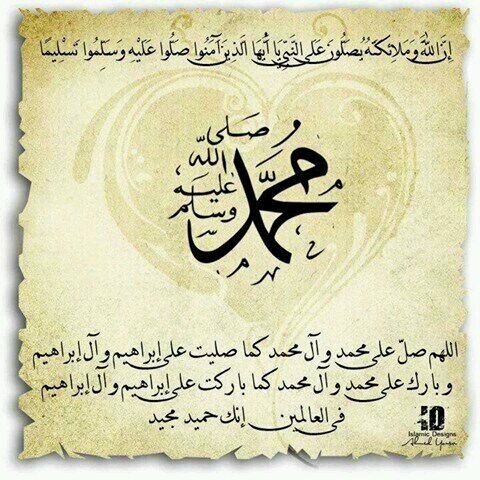 إِنَّ اللَّهَ وَمَلَائِكَتَهُ يُصَلُّونَ عَلَى النَّبِيِّ يَا أَيُّهَا الَّذِينَ آمَنُوا صَلُّوا عَلَيْهِ وَسَلِّمُوا تَسْلِيمًا
محمد صلى الله عليه وسلم
اللهم صلّ على محمد وآل محمد كما صليت على إبراهيم وآل إبراهيم
وبارك على محمد وآل محمد كما باركت على إبراهيم وآل إبراهيم
فى العالمين إنك حميد مجيد
Islamic Designs